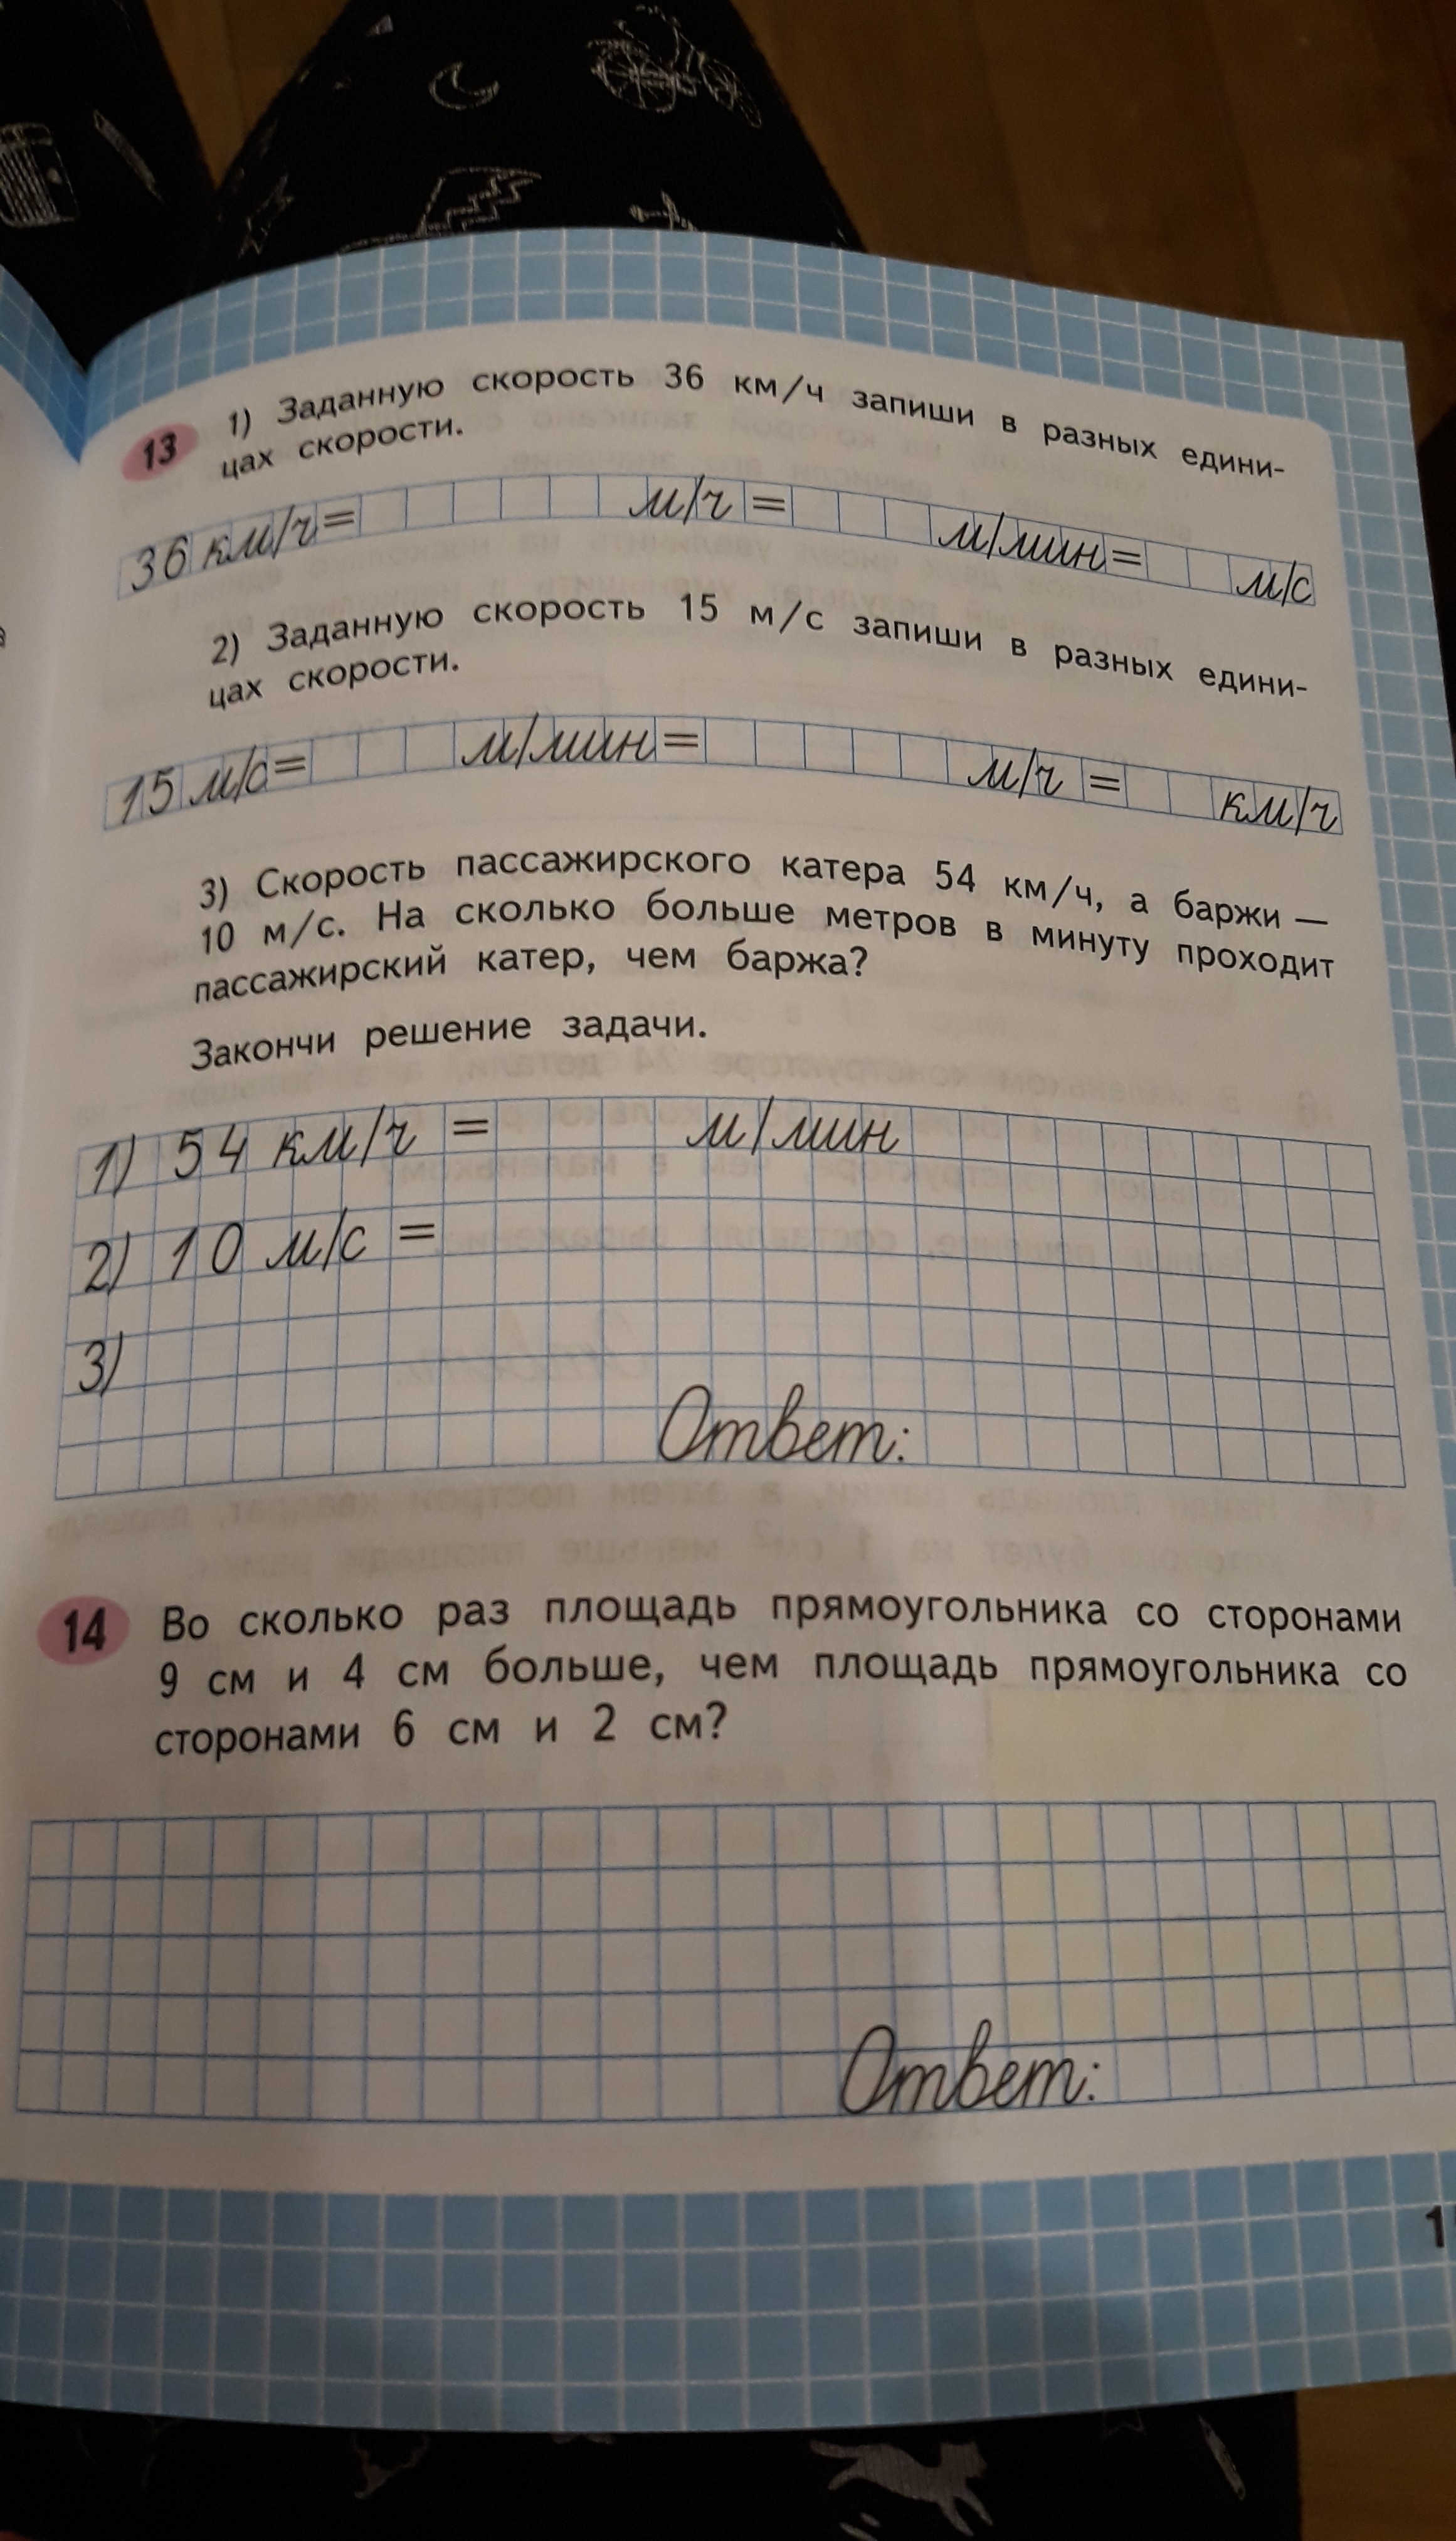 13 1) Заданную скорость 36 км/ч запиши в разных едини-
цах скорости.
36 км/ч= м/ч = м/мин= м/с
2) Заданную скорость 15 м/с запиши в разных едини-
цах скорости.
15 м/с= м/мин= м/ч = км/ч
3) Скорость пассажирского катера 54 км/ч, а баржи —
10 м/с. На сколько больше метров в минуту проходит
пассажирский катер, чем баржа?
Закончи решение задачи.
1) 54 км/ч = м/мин
2) 10 м/с =
3)
Ответ:
14 Во сколько раз площадь прямоугольника со сторонами
9 см и 4 см больше, чем площадь прямоугольника со
сторонами 6 см и 2 см?
Ответ:
1